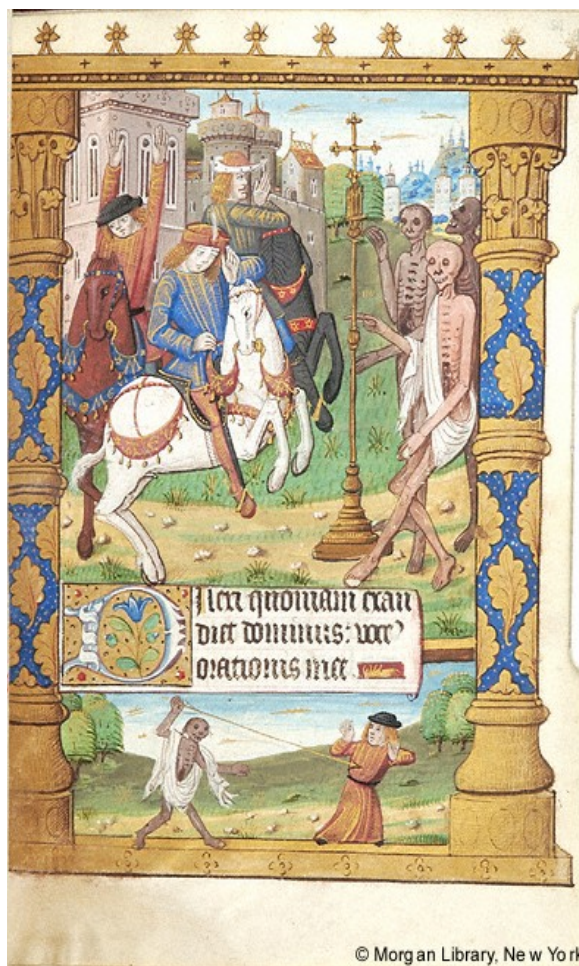 Dilexi quoniam exau
diet dominus: voce
orationis mee
© Morgan Library, New York